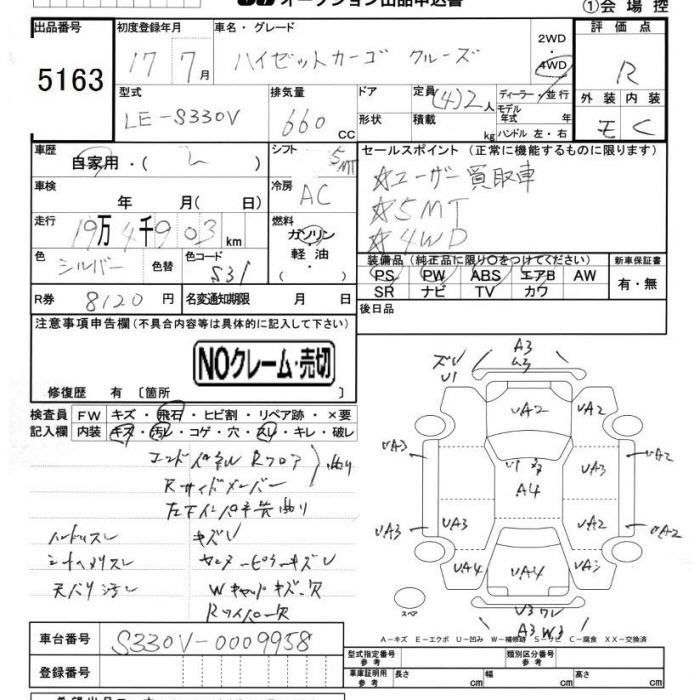 オークション出品申込書
①会場控
出品番号 初度登録年月 車名・グレード 評価点
5163 17 7月 ハイゼットカーゴ クルーズ 2WD・4WD R
型式 排気量 ドア 定員 ディーラー・並行 外装 内装
LE-S330V 660 CC 形状 積載 (4)2人 kg モデル年式 年 ハンドル 左・右 E C
車歴 シフト セールスポイント(正常に機能するものに限ります)
自家用・( ) 5MT ☆ユーザー買取車
車検 年 月( 日) 冷房 AC ☆5MT
走行 19万4千903km 燃料 ガソリン・軽油・ ☆4WD
色 シルバー 色替 色コード S31
装備品(純正品に限り○をつけてください) 新車保証書
PS PW ABS エアB AW 有・無
SR ナビ TV カワ
R券 8120円 名変通知期限 月 日 後日品
注意事項申告欄(不具合内容等は具体的に記入して下さい)
NOクレーム・売切
修復歴 有〔箇所 〕
検査員 FW キズ・飛石・ヒビ割・リペア跡・×要
記入欄 内装 キズ・汚レ・コゲ・穴・スレ・キレ・破レ
コンドパネル Rフロア 曲り
Rサイドメンバー
左下インパネ告曲り
ハンドルスレ キズU
シートヘタリスレ センターピラーキズU
天バリ汚レ Wキャップキズ・欠
Rワイパー欠
ズレ
U1
A3
UA2
UA3
UA2
U1
A4
UA3
UA3
UA3
UA2
UA2
UA4
UA4
U3ワレ
A3 W3
スペア
A-キズ E-エクボ U-凹み W-補修跡 S-サビ C-腐食 XX-交換済
車台番号 S330V-0009958
型式指定番号 参考 類別区分番号 参考
登録番号 車庫証明用 参考 長さ cm 幅 cm 高さ cm